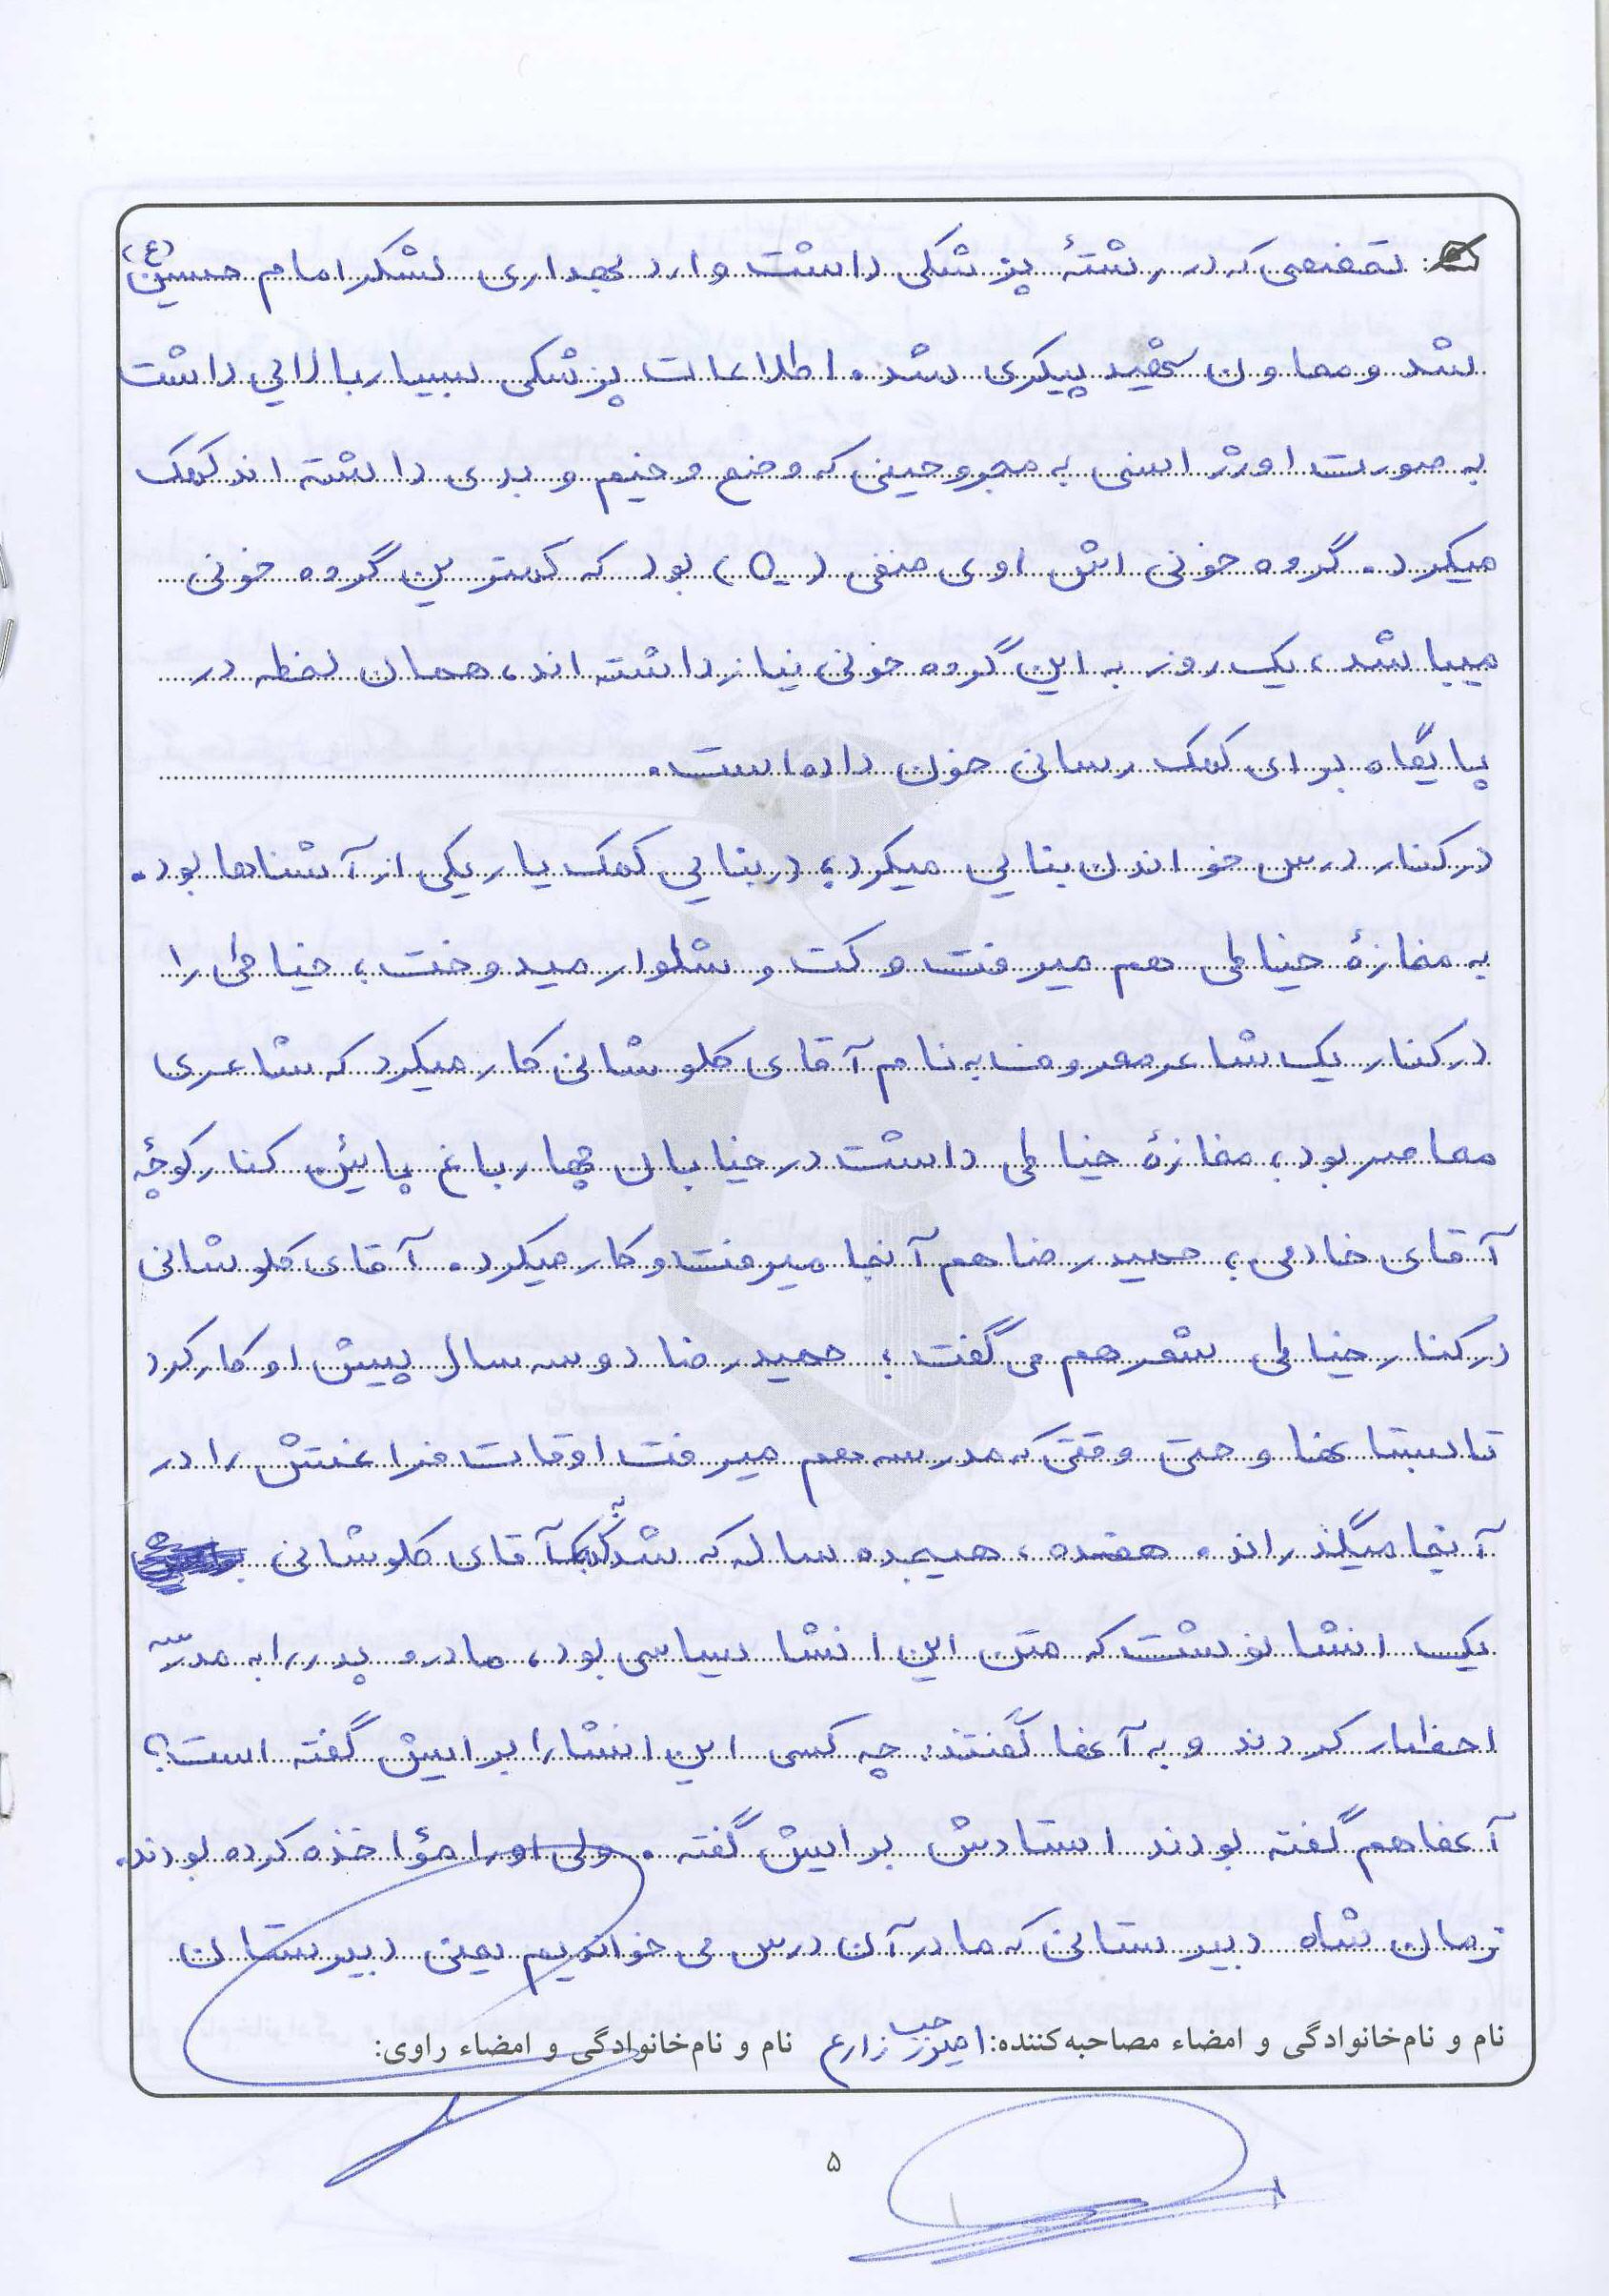 تخصصی که در رشتهٔ پزشکی داشت وارد بهداری لشکر امام حسین (ع)
شد و معاون شهید پیکری شد. اطلاعات پزشکی بسیار بالایی داشت
به صورت اورژانسی به مجروحینی که وضع وخیم و بدی داشته اند کمک
میکرد. گروه خونی اش اوی منفی (O-) بود که کمترین گروه خونی
میباشد، یک روز به این گروه خونی نیاز داشته اند، همان لحظه در
پایگاه برای کمک رسانی خون داده است.
در کنار درس خواندن بنایی میکرد؛ در بنایی کمک یار یکی از آشناها بود.
به مغازهٔ خیاطی هم میرفت و کت و شلوار میدوخت؛ خیاطی را
در کنار یک شاعر معروف به نام آقای کلوشانی کار میکرد که شاعری
معاصر بود؛ مغازهٔ خیاطی داشت در خیابان چهارباغ پایئن کنار کوچهٔ
آقای خادمی؛ حمیدرضا هم آنجا میرفت و کار میکرد. آقای کلوشانی
در کنار خیاطی شعر هم می گفت؛ حمیدرضا دو سه سال پیش او کار کرد
تابستانها و حتی وقتی که مدرسه هم میرفت اوقات فراغتش را در
آنجا میگذراند. هفده، هیجده ساله که شد به کمک آقای کلوشانی
یک انشا نوشت که متن این انشا سیاسی بود، مادر و پدر را به مدرسه
احظار کردند و به آنها گفتند: چه کسی این انشا را برایش گفته است؟
آنها هم گفته بودند استادش برایش گفته. ولی او را مؤاخذه کرده بودند.
زمان شاه دبیرستانی که ما در آن درس می خواندیم یعنی دبیرستان
نام و نام‌خانوادگی و امضاء مصاحبه‌کننده: امیررجب زارع نام و نام‌خانوادگی و امضاء راوی:
۵